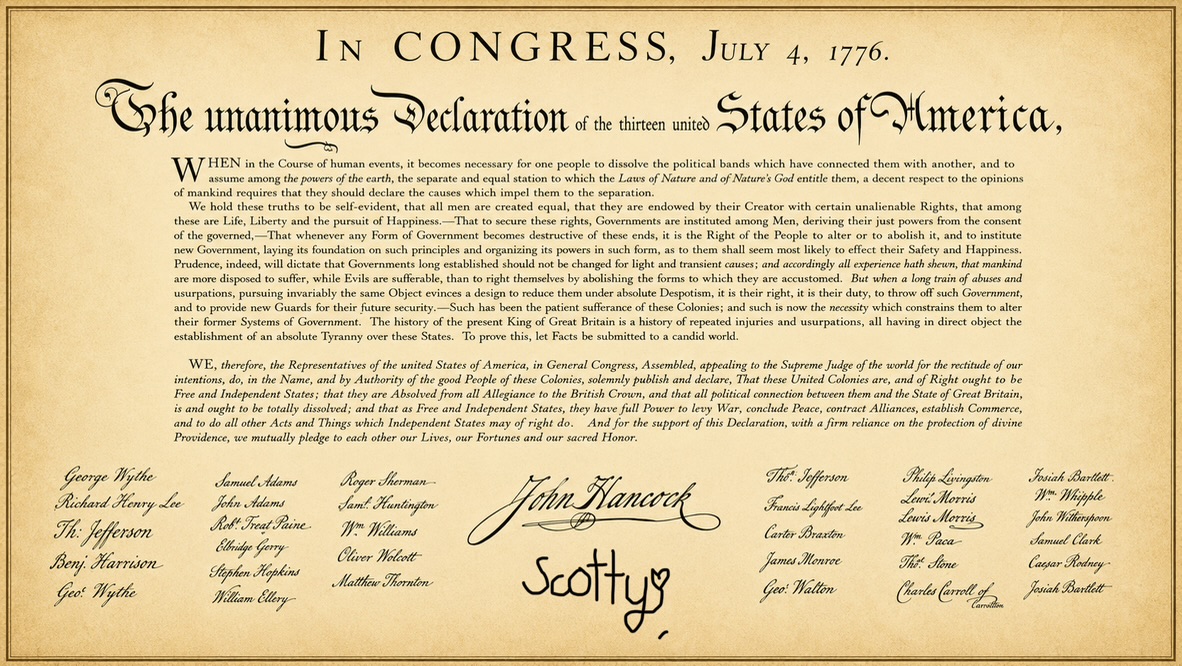 IN CONGRESS, JULY 4, 1776.
The unanimous Declaration of the thirteen united States of America,
WHEN in the Course of human events, it becomes necessary for one people to dissolve the political bands which have connected them with another, and to
assume among the powers of the earth, the separate and equal station to which the Laws of Nature and of Nature's God entitle them, a decent respect to the opinions
of mankind requires that they should declare the causes which impel them to the separation.
We hold these truths to be self-evident, that all men are created equal, that they are endowed by their Creator with certain unalienable Rights, that among
these are Life, Liberty and the pursuit of Happiness.—That to secure these rights, Governments are instituted among Men, deriving their just powers from the consent
of the governed,—That whenever any Form of Government becomes destructive of these ends, it is the Right of the People to alter or to abolish it, and to institute
new Government, laying its foundation on such principles and organizing its powers in such form, as to them shall seem most likely to effect their Safety and Happiness.
Prudence, indeed, will dictate that Governments long established should not be changed for light and transient causes; and accordingly all experience hath shewn, that mankind
are more disposed to suffer, while Evils are sufferable, than to right themselves by abolishing the forms to which they are accustomed. But when a long train of abuses and
usurpations, pursuing invariably the same Object evinces a design to reduce them under absolute Despotism, it is their right, it is their duty, to throw off such Government,
and to provide new Guards for their future security.—Such has been the patient sufferance of these Colonies; and such is now the necessity which constrains them to alter
their former Systems of Government. The history of the present King of Great Britain is a history of repeated injuries and usurpations, all having in direct object the
establishment of an absolute Tyranny over these States. To prove this, let Facts be submitted to a candid world.
WE, therefore, the Representatives of the united States of America, in General Congress, Assembled, appealing to the Supreme Judge of the world for the rectitude of our
intentions, do, in the Name, and by Authority of the good People of these Colonies, solemnly publish and declare, That these United Colonies are, and of Right ought to be
Free and Independent States; that they are Absolved from all Allegiance to the British Crown, and that all political connection between them and the State of Great Britain,
is and ought to be totally dissolved; and that as Free and Independent States, they have full Power to levy War, conclude Peace, contract Alliances, establish Commerce,
and to do all other Acts and Things which Independent States may of right do. And for the support of this Declaration, with a firm reliance on the protection of divine
Providence, we mutually pledge to each other our Lives, our Fortunes and our sacred Honor.
George Wythe
Richard Henry Lee
Th: Jefferson
Benj. Harrison
Geo. Wythe
Samuel Adams
John Adams
Robt. Treat Paine
Elbridge Gerry
Stephen Hopkins
William Ellery
Roger Sherman
Saml. Huntington
Wm. Williams
Oliver Wolcott
Matthew Thornton
John Hancock
Scotty
Thos. Jefferson
Francis Lightfoot Lee
Carter Braxton
James Monroe
Geo. Walton
Philip Livingston
Lewi. Morris
Lewis Morris
Wm. Paca
Thos. Stone
Charles Carroll of
Carrollton
Josiah Bartlett
Wm. Whipple
John Witherspoon
Samuel Clark
Caesar Rodney
Josiah Bartlett